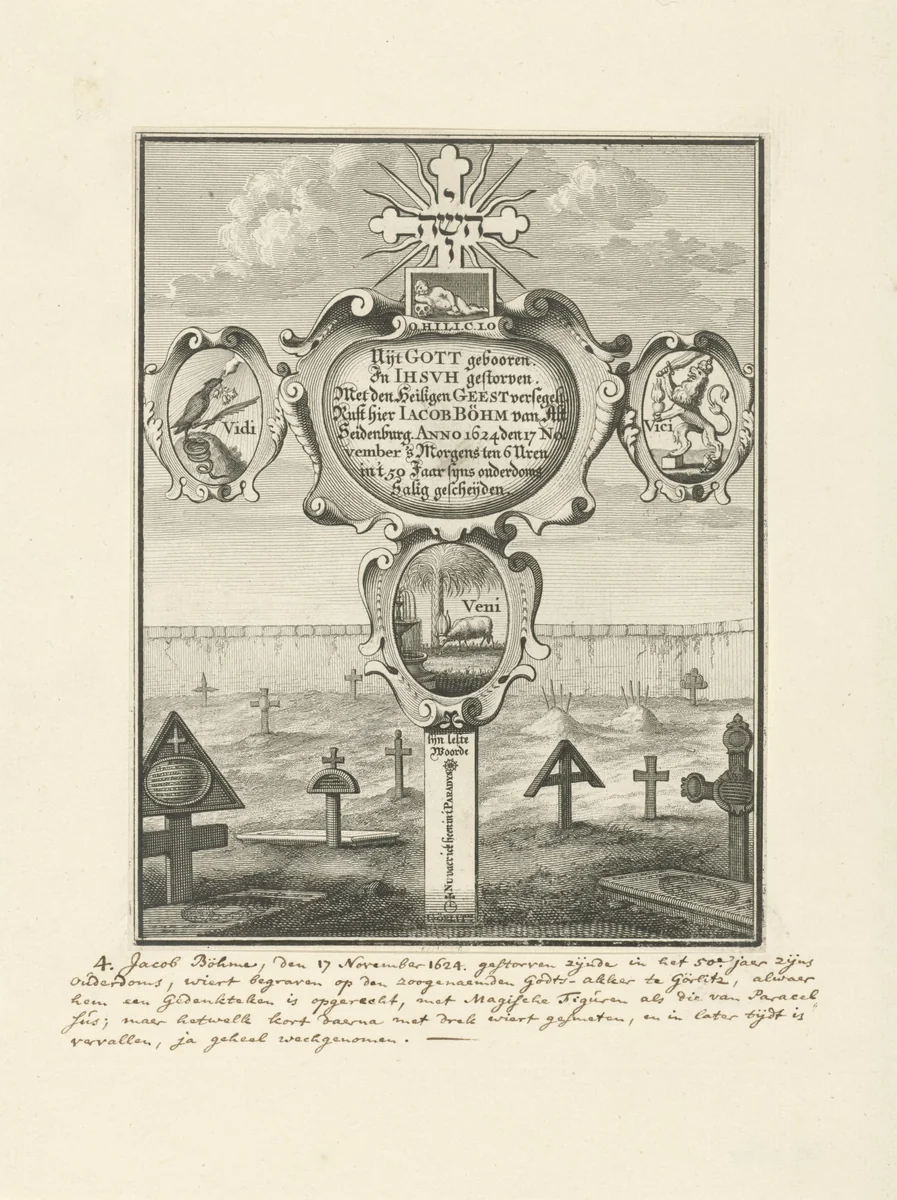 י
השה
ו
O.H.I.I.I.C.I.O
Uijt GOTT gebooren.
In IHSVH gestorven.
Met den Heiligen GEEST versegelt
Rust hier IACOB BÖHM van Alt
Seidenburg. ANNO 1624 den 17 No
vember 's Morgens ten 6 Uren
in t 50 Jaar sijns ouderdoms
Salig gescheijden.
Vidi
Vici
Veni
sijn leste
Woorde
Nu vaer ick heen in t PARADYS
GÖRLITZ
4. Jacob Böhme, den 17 November 1624. gestorven zijnde in het 50e. jaer zijns
ouderdoms, wiert begraven op den zoogenaemden Godts-akker te Görlitz, alwaer
hem een Gedenkteken is opgerecht, met Magische Figúren als die van Paracel
sús; maer hetwelk kort daerna met drek wiert gesmeten, en in later tijdt is
vervallen, ja geheel wechgenomen.